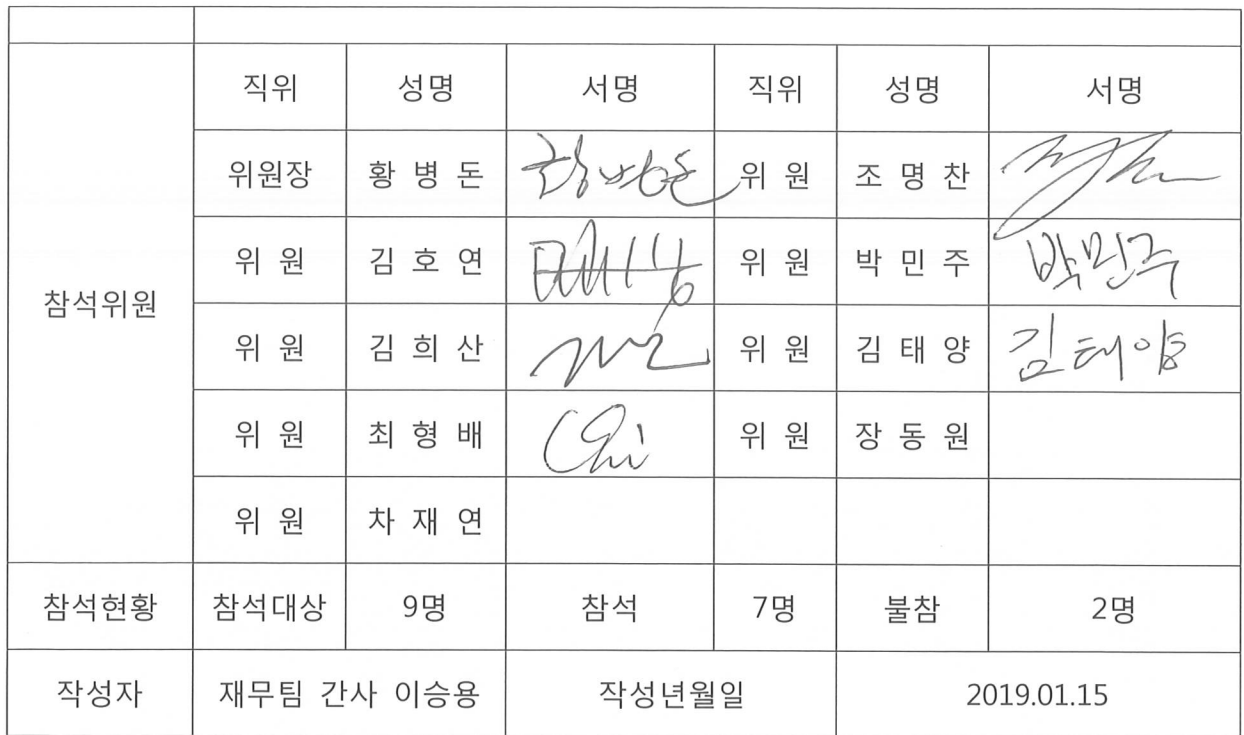 직위 성명 서명 직위 성명 서명
위원장 황 병 돈 황병돈 위 원 조 명 찬
위 원 김 호 연 위 원 박 민 주 박민주
참석위원
위 원 김 희 산 위 원 김 태 양 김태양
위 원 최 형 배 Chi 위 원 장 동 원
위 원 차 재 연
참석현황 참석대상 9명 참석 7명 불참 2명
작성자 재무팀 간사 이승용 작성년월일 2019.01.15